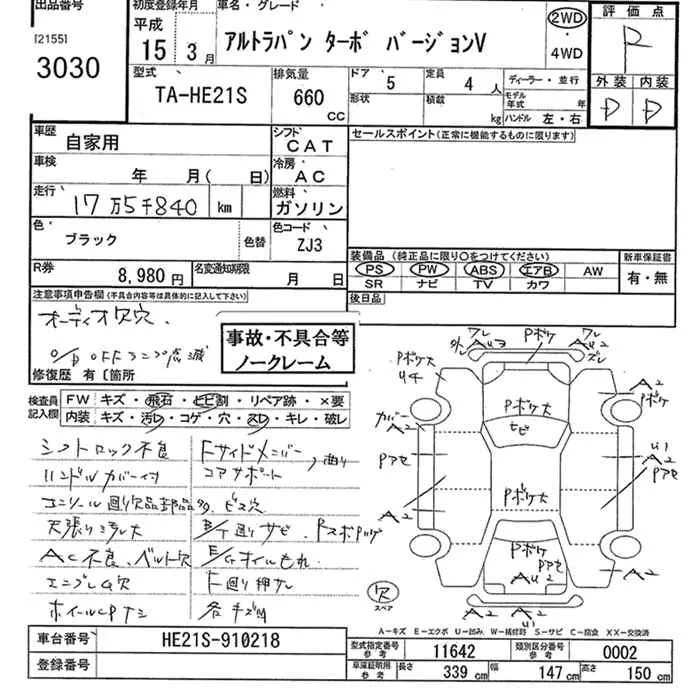 出品番号
[2155]
3030
初度登録年月
平成
15年 3月
車名・グレード
アルトラパン ターボ バージョンV
2WD
・
4WD
評価点
R
外装 内装
D D
型式
TA-HE21S
排気量
660
CC
ドア 5
形状
定員 4 人
積載 kg
ディーラー・並行
モデル年式 年
ハンドル 左・右
車歴 自家用
シフト CAT
車検 年 月( 日)
冷房 AC
走行 17万5千840 km
燃料 ガソリン
色 ブラック
色替
色コード ZJ3
R券 8,980円
名変通知期限 月 日
セールスポイント(正常に機能するものに限ります)
装備品 (純正品に限り○をつけてください)
PS PW ABS エアB AW
SR ナビ TV カワ
新車保証書
有・無
後日品
注意事項申告欄(不具合内容等は具体的に記入して下さい)
オーディオ欠穴、
O/D OFFランプ点滅
事故・不具合等
ノークレーム
修復歴 有〔箇所
検査員
記入欄
FW キズ・飛石・ヒビ割・リペア跡・×要
内装 キズ・汚レ・コゲ・穴・スレ・キレ・破レ
シフトロック不良
ハンドルカバー付
エンソール廻り欠品部品多、ビス穴
天張り汚レ大
AC不良、ベルト欠
エンブレム欠
ホイールCPナシ
Fサイドメンバー、曲り
コアサポート
B/T廻りサビ、
E/Gオイルもれ、
F廻り押サレ
各キズ凹
ワレ
外レ
AU3
Pボケ
ワレ
AU2
ズレ
Pボケ大
U4
Pボケ大
A2
Pボケ
カバー
A2
サビ
U1
A2
Pアセ
Pアセ
Pボケ大
A2
Pボケ
Pアセ
AU2
A2
A2
AU2
欠
スペア
A-キズ E-エクボ U-凹み W-補修跡 S-サビ C-腐食 XX-交換済
車台番号 HE21S-910218
登録番号
型式指定番号
参考
11642
類別区分番号
参考
0002
車庫証明用
参考
長さ 339 cm 幅 147 cm 高さ 150 cm